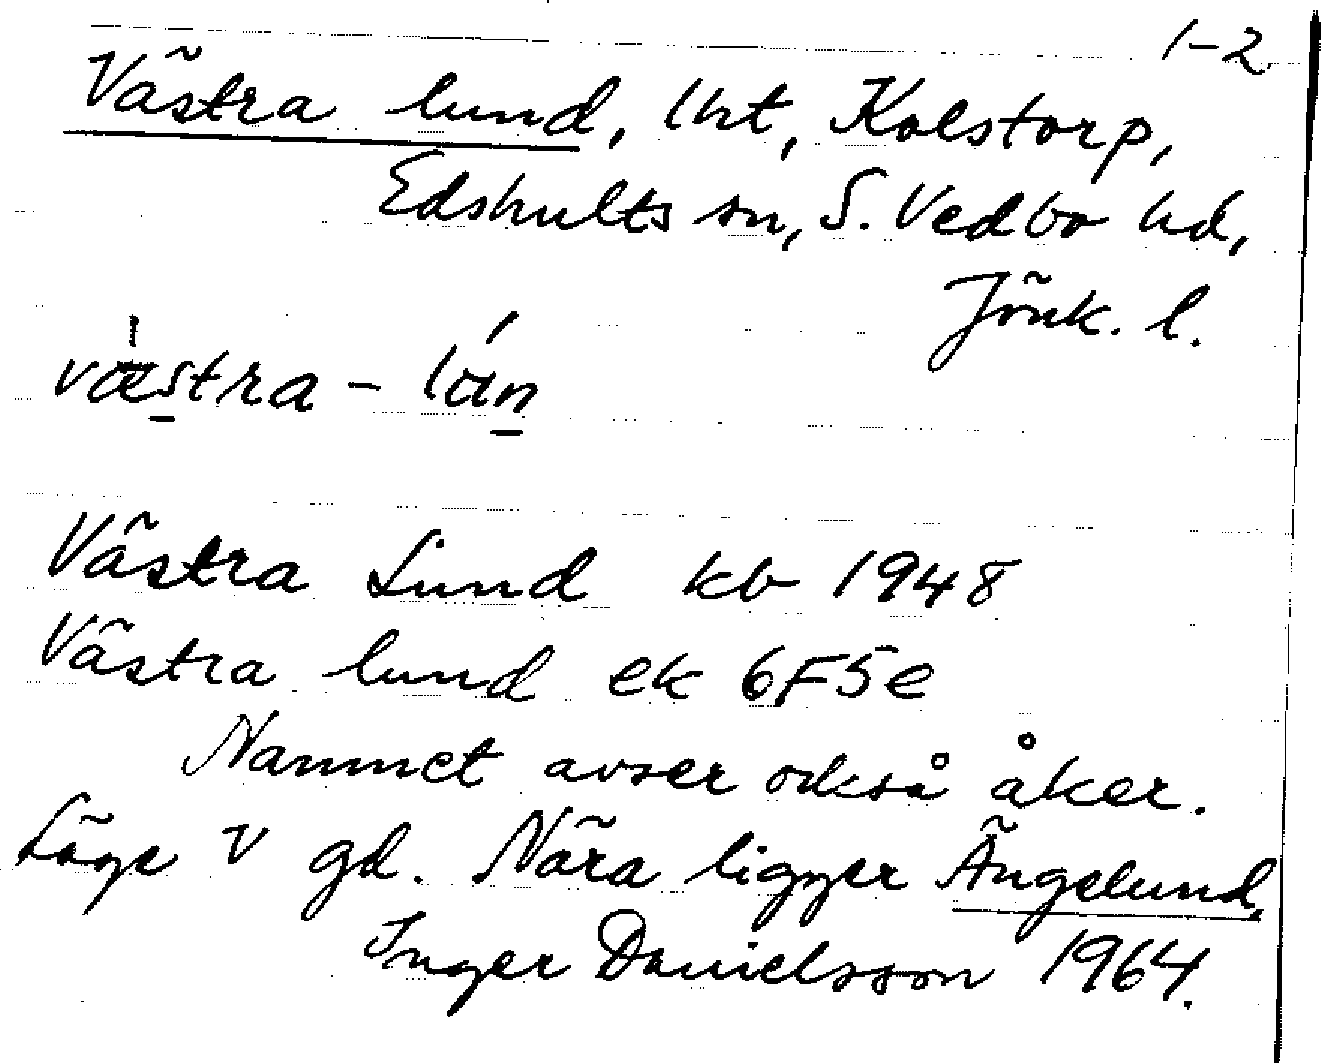 1-2.
Västra lund, lht, Kolstorp,
Edshults sn, S. Vedbo hd,
Jönk. l.
västra - lún
Västra Lund kb 1948
Västra lund ek 6F5e
Namnet avser också åker.
Läge V gd. Nära ligger Ängelund.
Inger Danielsson 1964.